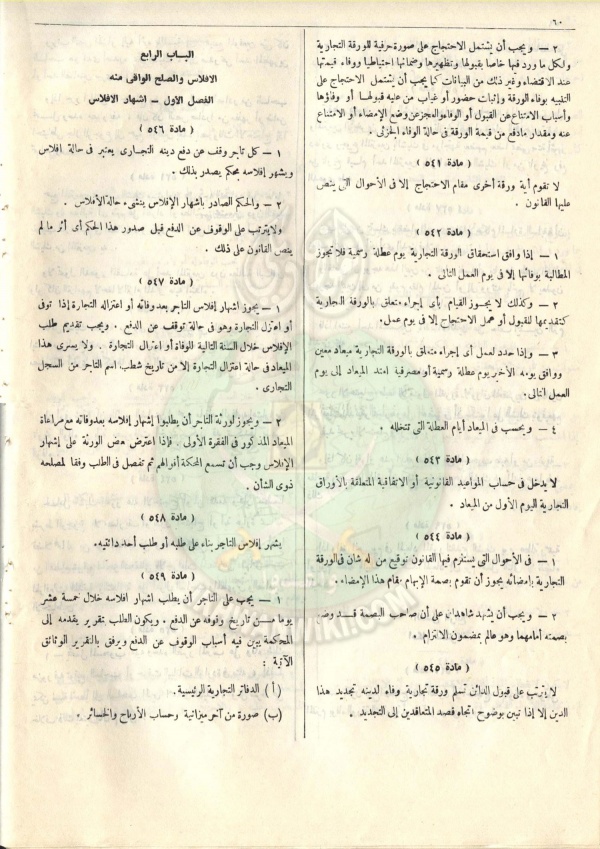 ٦٠
٢ — ويجب أن يشتمل الاحتجاج على صورة حرفية للورقة التجارية
ولكل ما ورد فيها خاصا بقبولها وتظهيرها وضمانها احتياطيا ووفاء قيمتها
عند الاقتضاء وغير ذلك من البيانات كما يجب أن يشتمل الاحتجاج على
التنبيه بوفاء الورقة وإثبات حضور أو غياب من عليه قبولها أو وفاؤها
وأسباب الامتناع عن القبول أو الوفاء والعجز عن وضع الإمضاء أو الامتناع
عنه ومقدار مادفع من قيمة الورقة فى حالة الوفاء الجزئى .
( مادة ٥٤١ )
لا تقوم أية ورقة أخرى مقام الاحتجاج إلا فى الأحوال التى ينص
عليها القانون .
( مادة ٥٤٢ )
١ — إذا وافق استحقاق الورقة التجارية يوم عطلة رسمية فلا تجوز
المطالبة بوفائها إلا فى يوم العمل التالى .
٢ — وكذلك لا يجوز القيام بأى إجراء متعلق بالورقة التجارية
كتقديمها للقبول أو عمل الاحتجاج إلا فى يوم عمل.
٣ — وإذا حدد لعمل أى إجراء متعلق بالورقة التجارية ميعاد معين
ووافق يومه الأخير يوم عطلة رسمية أو مصرفية امتد الميعاد إلى يوم
العمل التالى.
٤ — ويحسب فى الميعاد أيام العطلة التى تتخلله .
( مادة ٥٤٣ )
لا يدخل فى حساب المواعيد القانونية أو الاتفاقية المتعلقة بالأوراق
التجارية اليوم الأول من الميعاد .
( مادة ٥٤٤ )
١ — فى الأحوال التى يستلزم فيها القانون توقيع من له شان فى الورقة
التجارية بإمضائه يجوز أن تقوم بصمة الإبهام مقام هذا الإمضاء .
٢ — ويجب أن يشهد شاهدان على أن صاحب البصمة قد وضع
بصمته أمامهما وهو عالم بمضمون الالتزام .
( مادة ٥٤٥ )
لا يترتب على قبول الدائن تسلم ورقة تجارية وفاء لدينه تجديد هذا
الدين إلا إذا تبين بوضوح اتجاه قصد المتعاقدين إلى التجديد .
الباب الرابع
الافلاس والصلح الواقى منه
الفصل الأول — اشهار الافلاس
( مادة ٥٤٦ )
١ — كل تاجر وقف عن دفع دينه التجارى يعتبر فى حالة إفلاس
ويشهر إفلاسه بحكم يصدر بذلك .
٢ — والحكم الصادر باشهار الإفلاس ينشىء حالة الأفلاس .
ولا يترتب على الوقوف عن الدفع قبل صدور هذا الحكم أى أثر ما لم
ينص القانون على ذلك .
( مادة ٥٤٧ )
١ — يجوز اشهار إفلاس التاجر بعد وفاته أو اعتزاله التجارة إذا توفى
أو اعتزل التجارة وهو فى حالة توقف عن الدفع . ويجب تقديم طلب
الإفلاس خلال السنة التالية للوفاة أو اعتزال التجارة . ولا يسرى هذا
الميعاد فى حالة اعتزال التجارة إلا من تاريخ شطب اسم التاجر من السجل
التجارى .
٢ — ويجوز لورثة التاجر أن يطلبوا إشهار إفلاسه بعد وفاته مع مراعاة
الميعاد المذكور فى الفقرة الأولى . فإذا اعترض بعض الورثة على إشهار
الإفلاس وجب أن تسمع المحكمة أقوالهم ثم تفصل فى الطلب وفقا لمصلحه
ذوى الشأن .
( مادة ٥٤٨ )
يشهر إفلاس التاجر بناء على طلبه أو طلب أحد دائنيه .
( مادة ٥٤٩ )
١ — يجب على التاجر أن يطلب اشهار افلاسه خلال خمسة عشر
يوما من تاريخ وقوفه عن الدفع . ويكون الطلب بتقرير يقدمه إلى
المحكمة يبين فيه أسباب الوقوف عن الدفع ويرفق بالتقرير الوثائق
الآتية :
( أ ) الدفاتر التجارية الرئيسية .
(ب) صورة من آخر ميزانية وحساب الأرباح والخسائر .